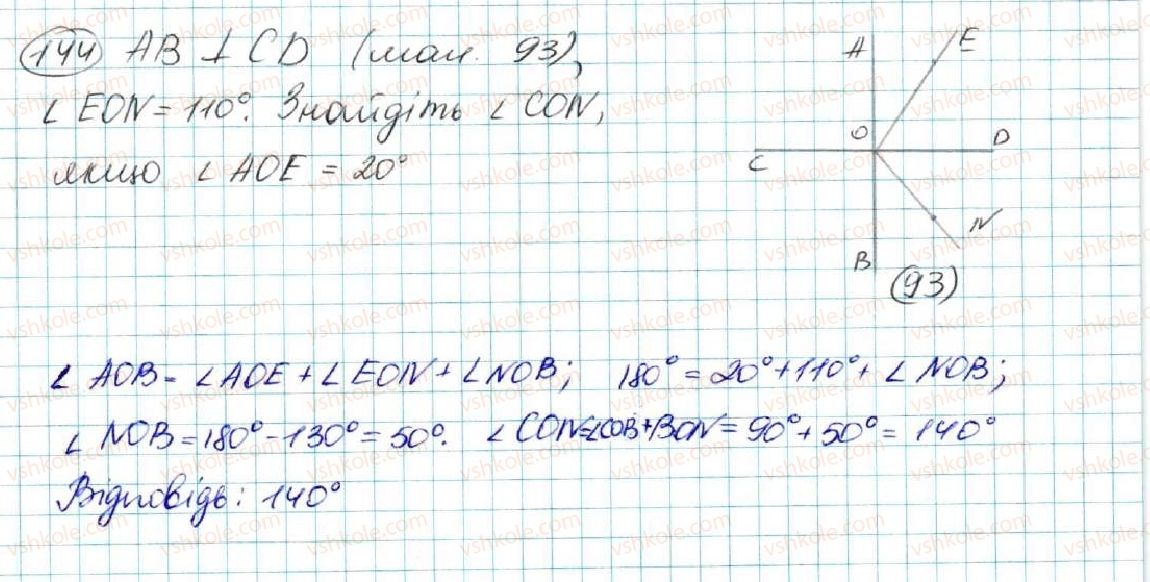 144 AB ⊥ CD (мал. 93),
∠ EON = 110°. Знайдіть ∠ CON,
якщо ∠ AOE = 20°
A E
O D
C
N
B
(93)
∠ AOB = ∠AOE + ∠ EON + ∠NOB; 180° = 20° + 110° + ∠ NOB;
∠ NOB = 180° - 130° = 50°. ∠ CON = ∠COB + BON = 90° + 50° = 140°
Відповідь: 140°
vshkole.com